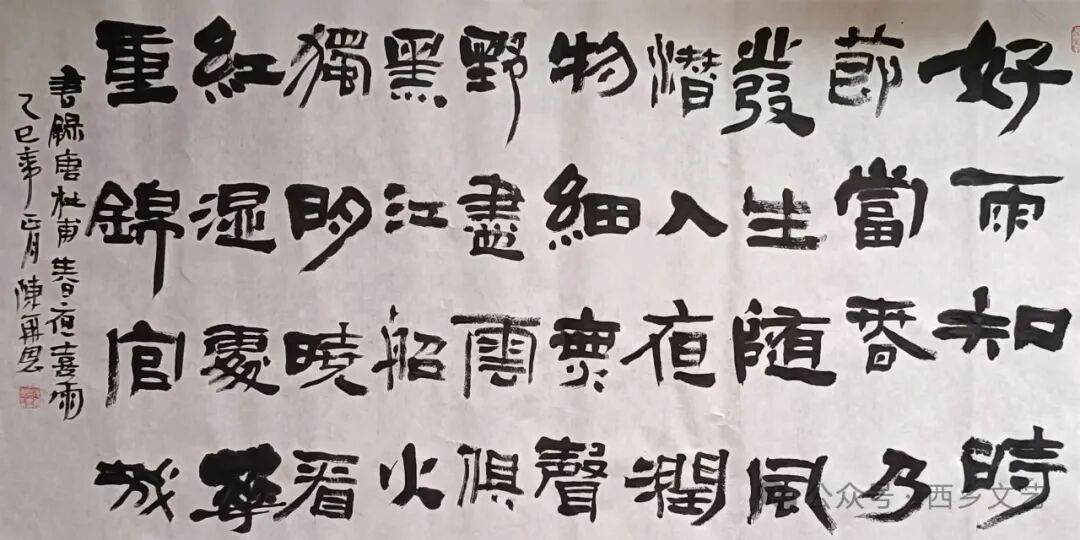 好雨知時
節當春乃
發生随風
潛入夜潤
物細無聲
野盡雲俱
黑江船火
獨明曉看
紅湿處華
重錦官城
書錄唐杜甫春夜喜雨
乙巳年正月陳再
公众号·西乡文艺